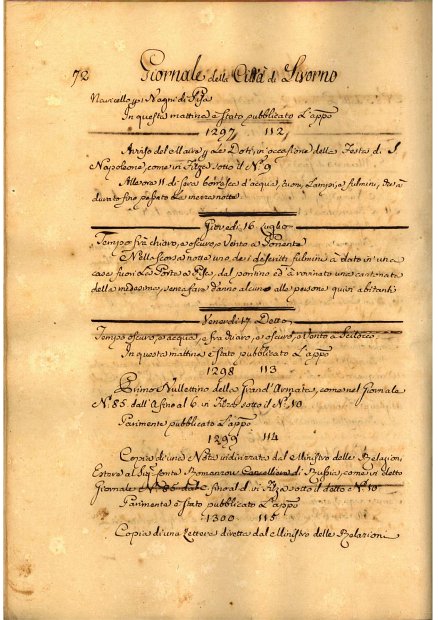 72 Giornale della Città di Livorno
Navicello p. Bagni di Pisa
In questa mattina è stato pubblicato L'app.o
1297 112
Avviso del Maire p. Le Doti, in occasione della Festa di S.
Napoleone, come in Filza sotto il N.o 9
Alle ora 11 di sera borrasca d'acqua, tuoni, Lampi, e fulmini, che à
durato fino passato La mezza notte
Giovedì 16 Luglio
Tempo frà chiaro, e oscuro, Vento a Ponente
Nella scorsa notte uno dei descritti fulmini à dato in una
casa fuori La Porta a Pisa, del pontino ed à rovinato una cantonata
della medesima, senza fare danno alcuno alle persone quivi abitanti
Venerdì 17 Detto
Tempo oscuro, e acqua, e frà chiaro, e oscuro, e Vento a Scilocco
In questa mattina è stato pubblicato L'app.o
1298 113
Primo Bullettino della Grand'Armata, come nel Giornale
N.o 85 dall'A fino al 6 in Filza sotto il N.o 10
Parimente pubblicato L'app.o
1299 114
Copia di una Nota indirizzata dal Ministro delle Relazioni
Estere al Sig. Conte Romanzow Cancelliere di Russia, come in detto
Giornale N.o 85 dal C fino al d in Filza sotto il detto N.o 10
Parimente è stato pubblicato L'app.o
1300 115
Copia di una Lettera diretta dal Ministro delle Relazioni